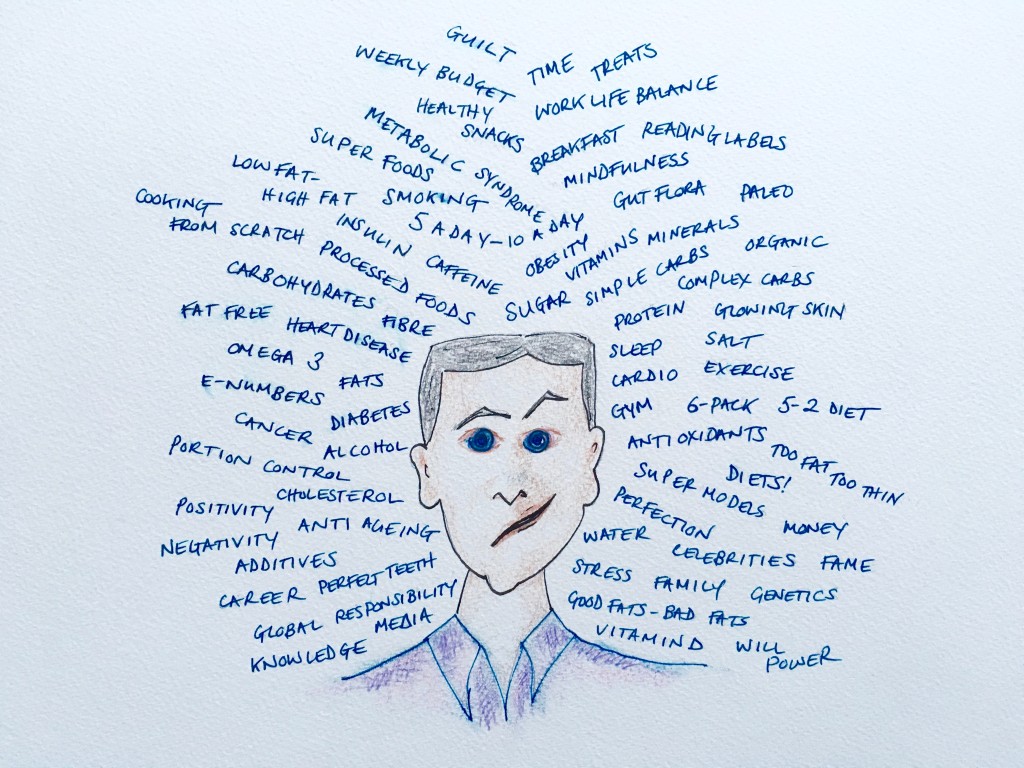 GUILT
TIME
TREATS
WEEKLY BUDGET
WORK LIFE BALANCE
HEALTHY
SNACKS
METABOLIC SYNDROME
BREAKFAST
READING LABELS
SUPER FOODS
MINDFULNESS
LOW FAT-
HIGH FAT
SMOKING
GUT FLORA
PALEO
5 A DAY-10 A DAY
COOKING
FROM SCRATCH
INSULIN
CAFFEINE
OBESITY
VITAMINS MINERALS
PROCESSED FOODS
SUGAR
SIMPLE CARBS
ORGANIC
COMPLEX CARBS
CARBOHYDRATES
FIBRE
PROTEIN
GLOWING SKIN
FAT FREE
HEART DISEASE
SLEEP
SALT
OMEGA 3
FATS
CARDIO
EXERCISE
E-NUMBERS
DIABETES
GYM
6-PACK
5-2 DIET
CANCER
ALCOHOL
ANTIOXIDANTS
TOO FAT
TOO THIN
PORTION CONTROL
CHOLESTEROL
SUPER MODELS
DIETS!
POSITIVITY
ANTI AGEING
PERFECTION
MONEY
NEGATIVITY
WATER
CELEBRITIES
FAME
ADDITIVES
PERFECT TEETH
STRESS
FAMILY
GENETICS
CAREER
GLOBAL RESPONSIBILITY
GOOD FATS-BAD FATS
MEDIA
VITAMIN D
WILL
POWER
KNOWLEDGE